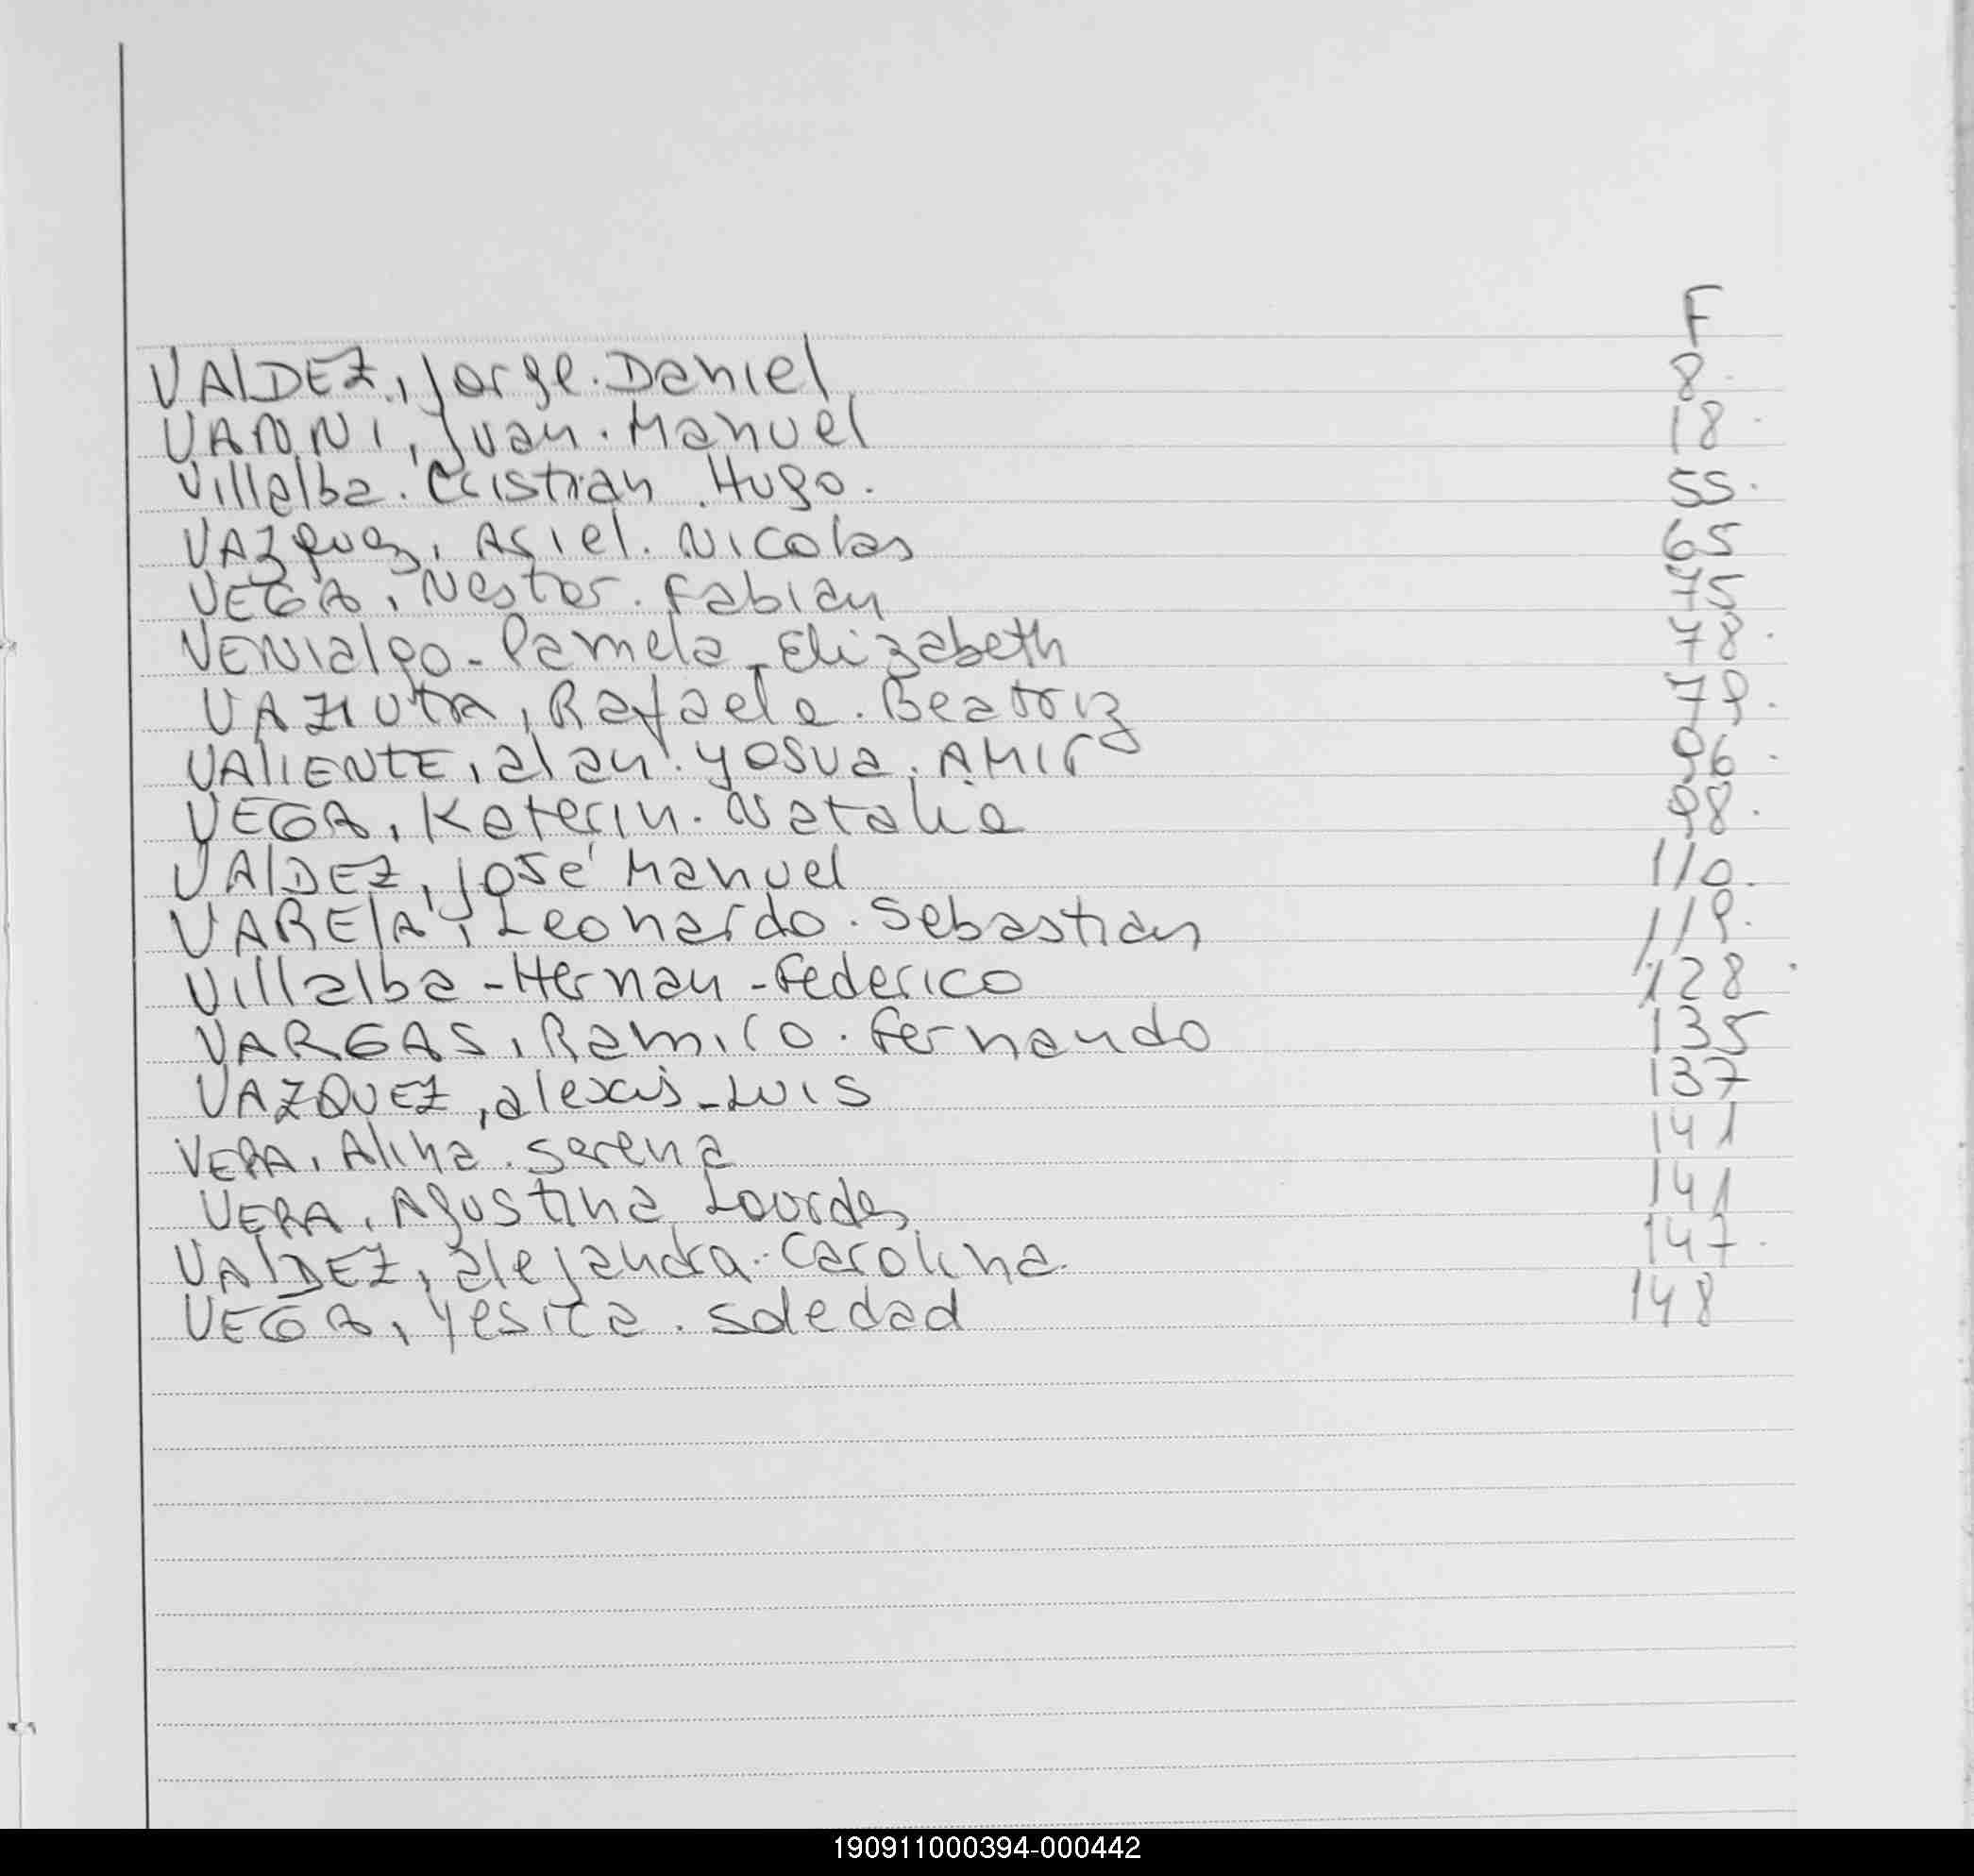 F
VAlDEZ, Jorge. Daniel 8.
VANNI, Juan. Manuel 18.
Villalba. Cristian. Hugo. 55.
VAZquez, Asiel. Nicolas 65
VEGA, Nestor. Fabian 75
VENialgo - Pamela - Elizabeth 78.
Rafaela. Beatriz 79.
VAlIENTE, alan. Yosua. AMIr 96.
VEGA, Katerin. Natalia 98.
VAlDEZ, José Manuel 110.
VARElA, Leonardo. Sebastian 119.
Villalba - Hernan - Federico 128.
VARGAS, Ramiro. Fernando 135
VAZQUEZ, alexis - Luis 137
VERA, Alina. Serena 141
VERA, Agustina Lourdes 141
VAlDEZ, alejandra. Carolina. 147.
VEGA, Yesica. Soledad 148
190911000394-000442